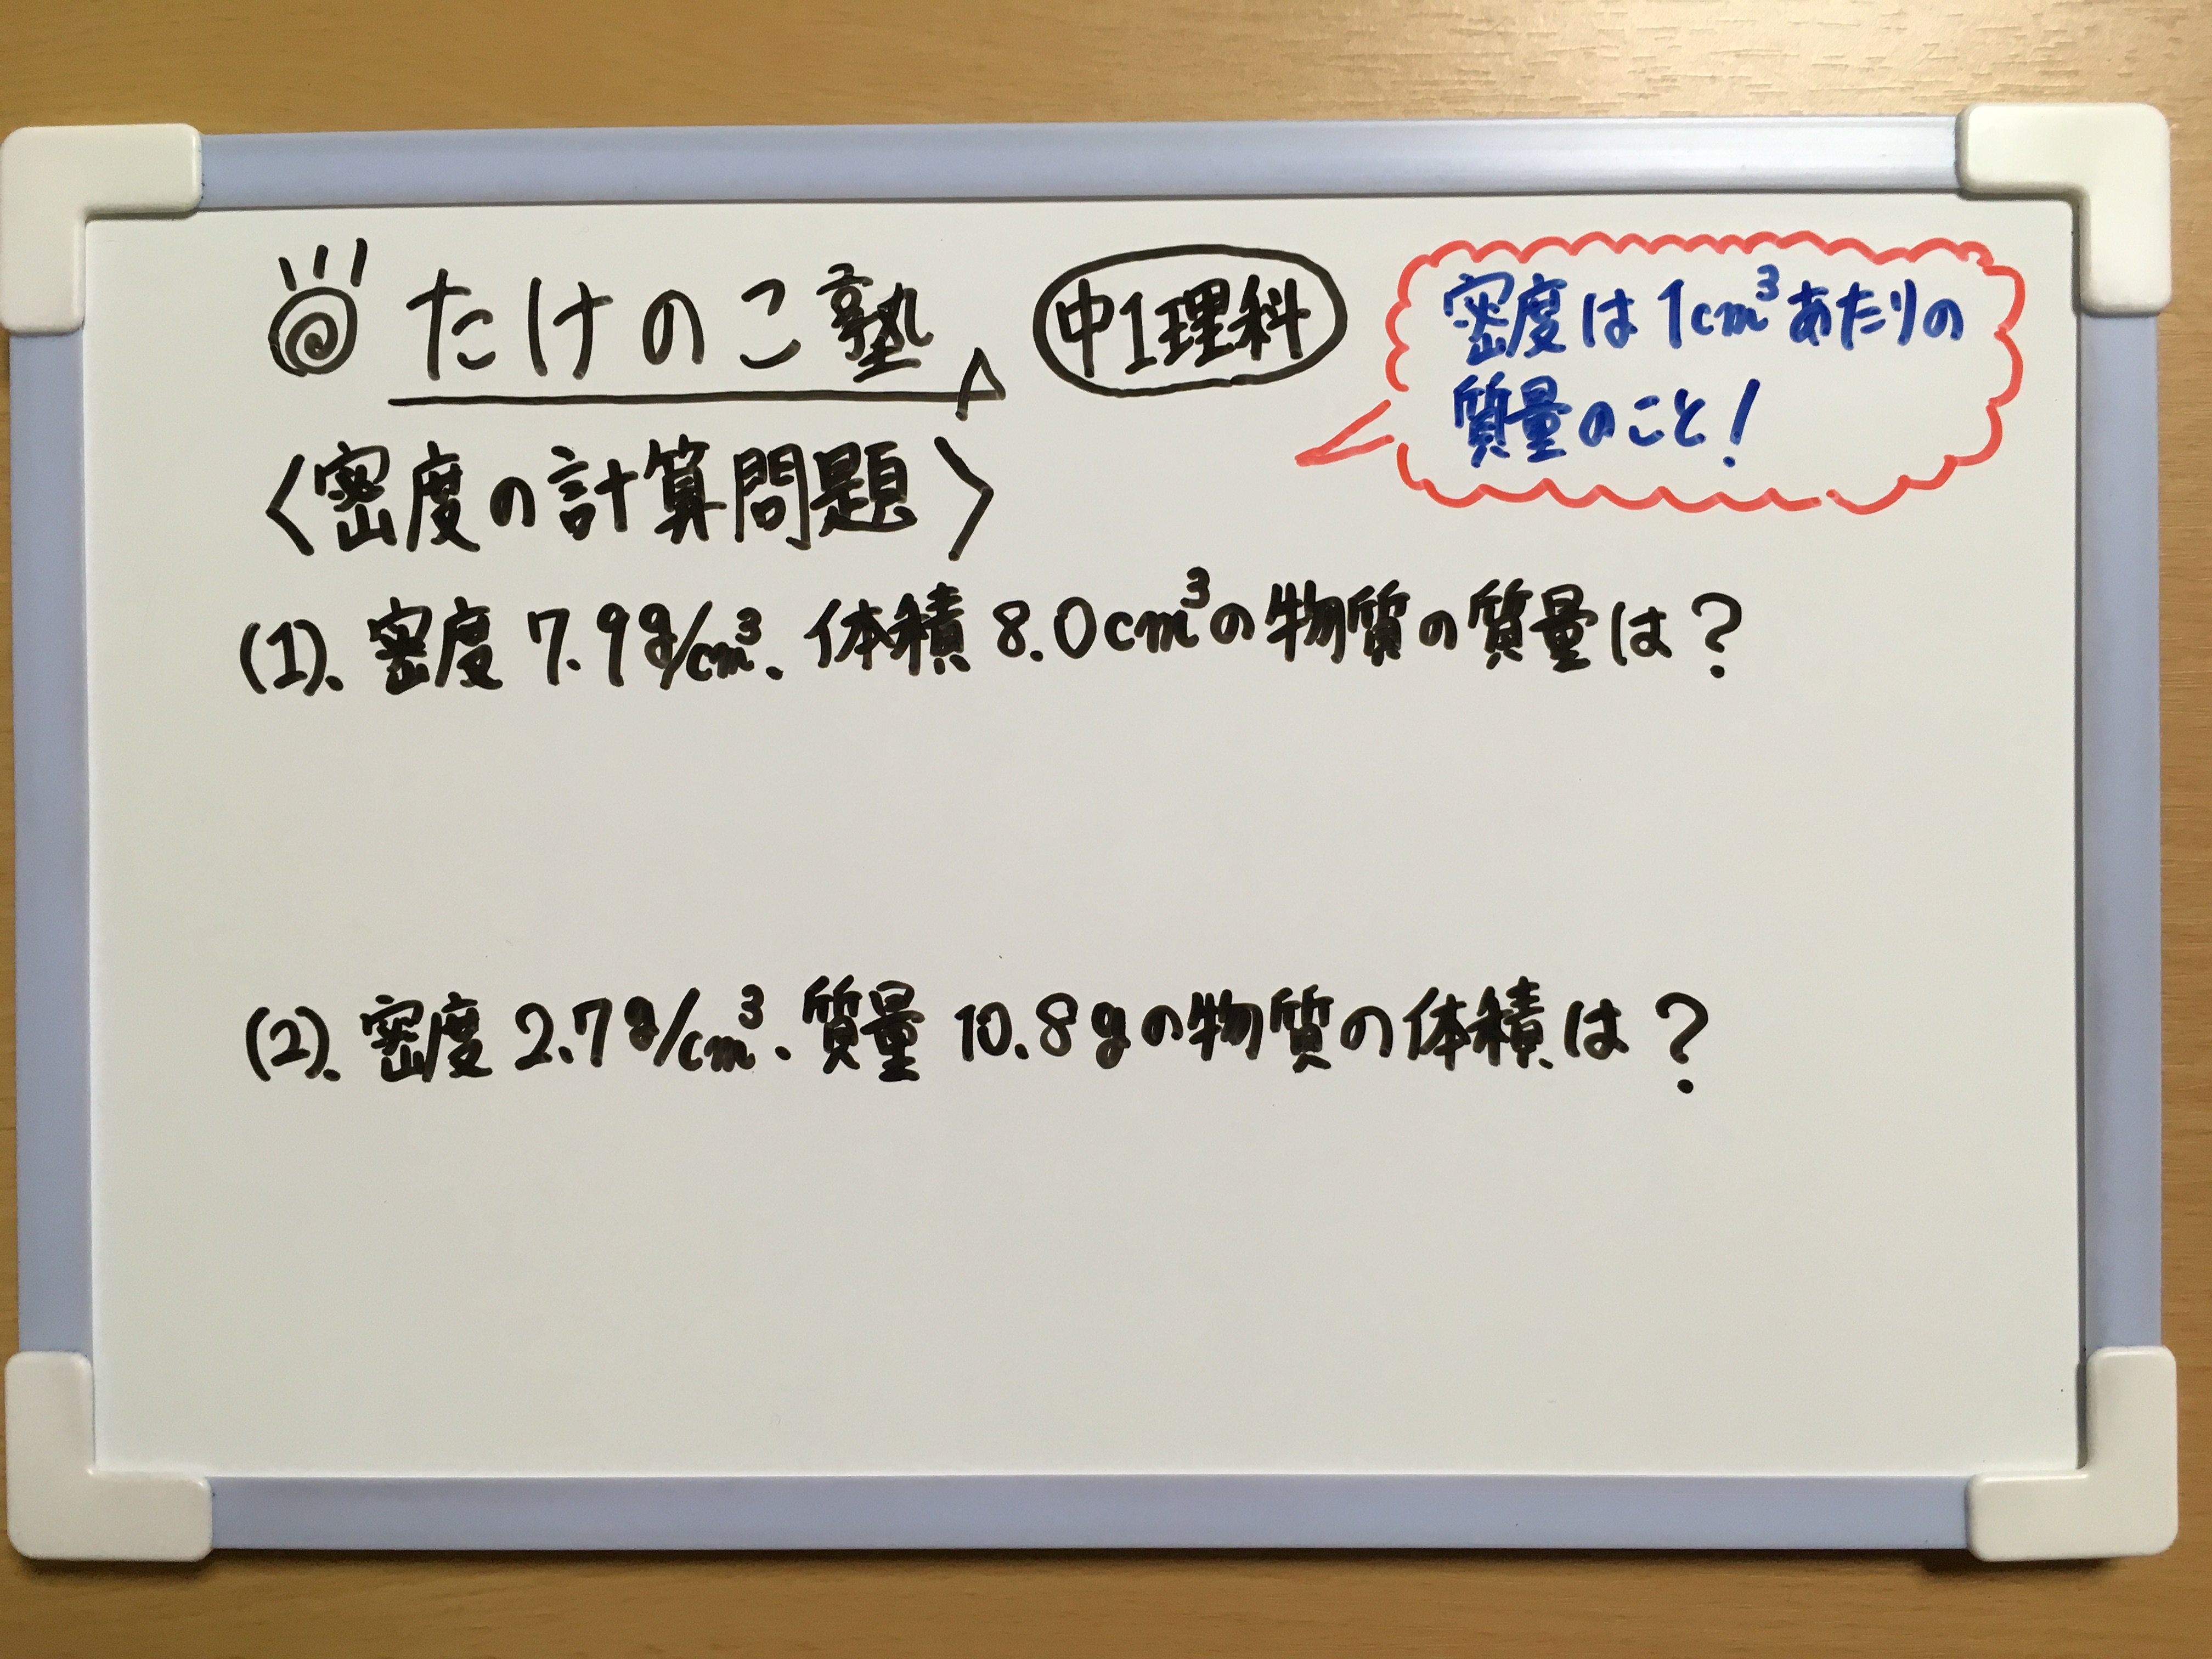 たけのこ塾 中1理科
密度は1cm³あたりの
質量のこと!
〈密度の計算問題〉
(1). 密度 7.9g/cm³. 体積 8.0cm³の物質の質量は?
(2). 密度 2.7g/cm³. 質量 10.8gの物質の体積は?